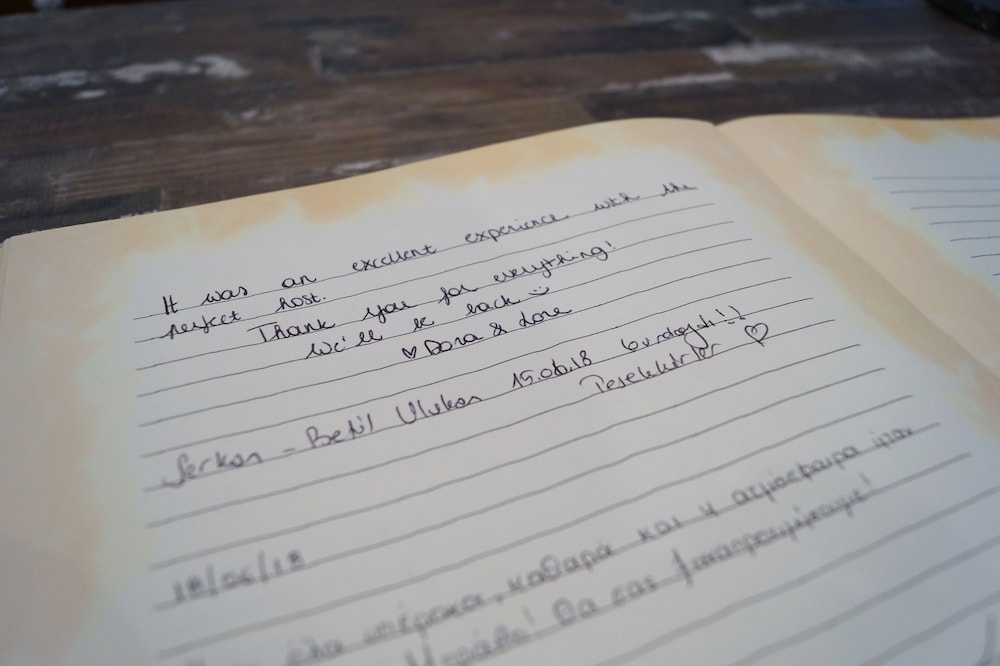 It was an excellent experience with the
perfect host.
Thank you for everything!
We'll be back
♡ Dora & Lore
Serkan - Betül Ulukan 15.06.18 burdaydı!:)
Teşekkürler ♡
18/06/18
όλα υπέροχα, καθαρά και η ατμόσφαιρα ήταν
Μπράβο! Θα σας ξαναπροτιμήσουμε!